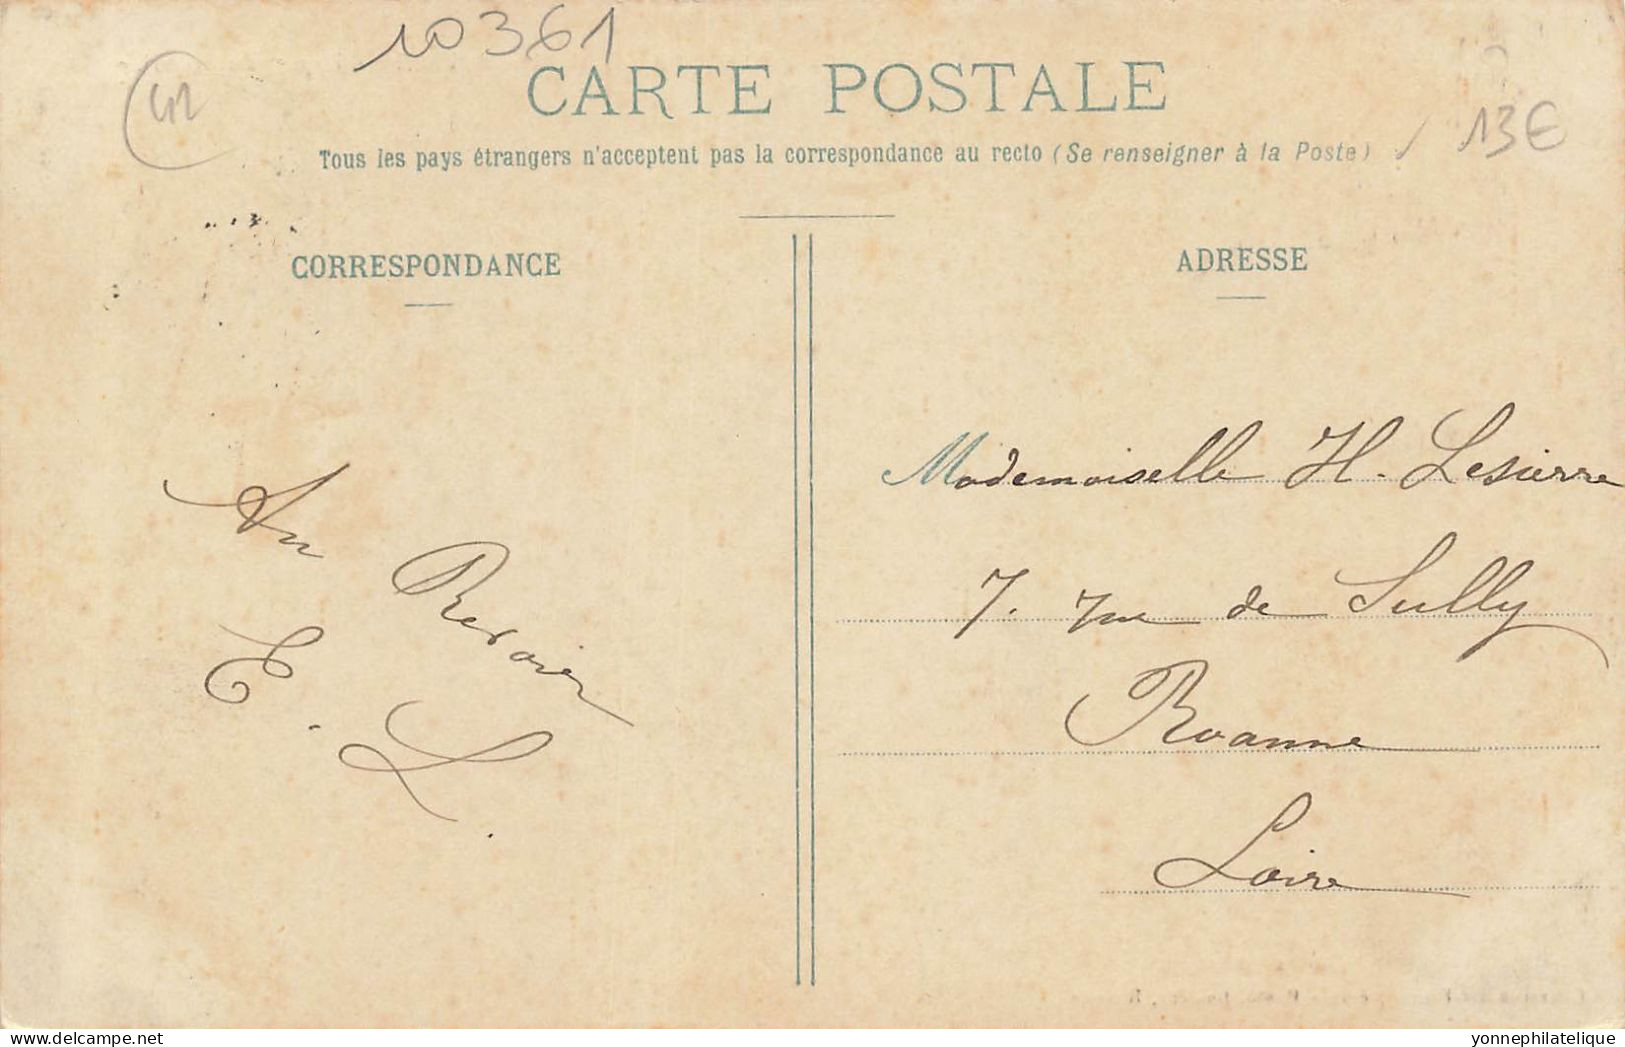 10361
42
CARTE POSTALE
13€
Tous les pays étrangers n'acceptent pas la correspondance au recto (Se renseigner à la Poste)
CORRESPONDANCE
ADRESSE
Au Revoir
E. L.
Mademoiselle H. Lesierre
7. rue de Sully
Roanne
Loire
www.delcampe.net
yonnephilatelique